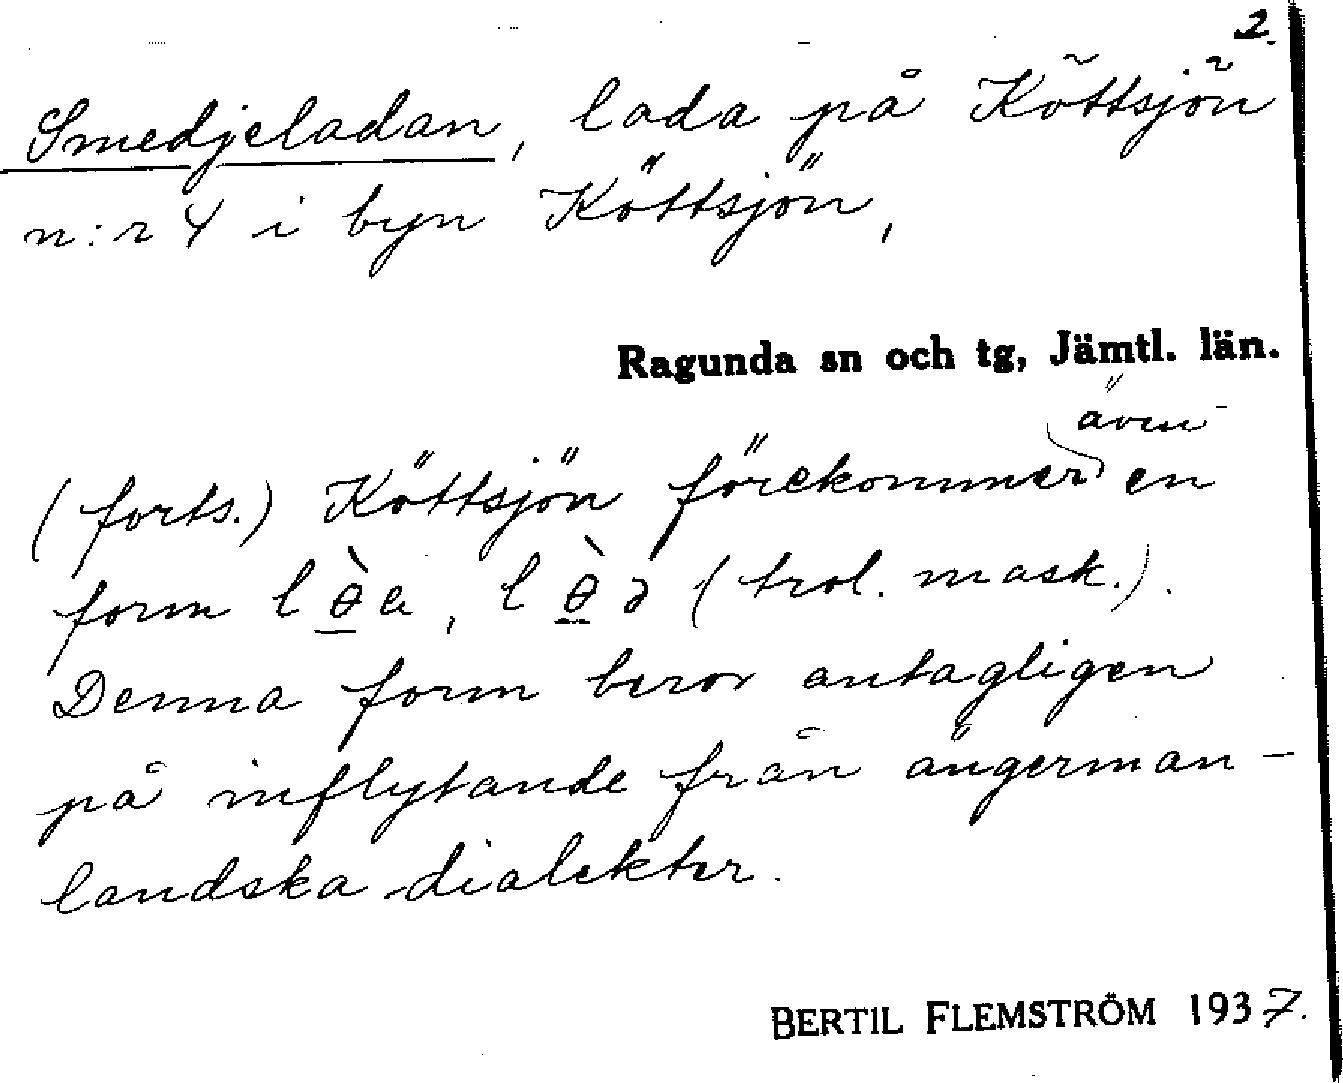 2.
Smedjeladan, lada på Köttsjön
n:r 4 i byn Köttsjön,
Ragunda sn och tg, Jämtl. län.
även
(forts.) Köttsjön förekommer en
form l ɵ̀ a, l ɵ̀ ə (trol. mask.).
Denna form beror antagligen
på inflytande från ångerman-
landska dialekter.
BERTIL FLEMSTRÖM 1937.